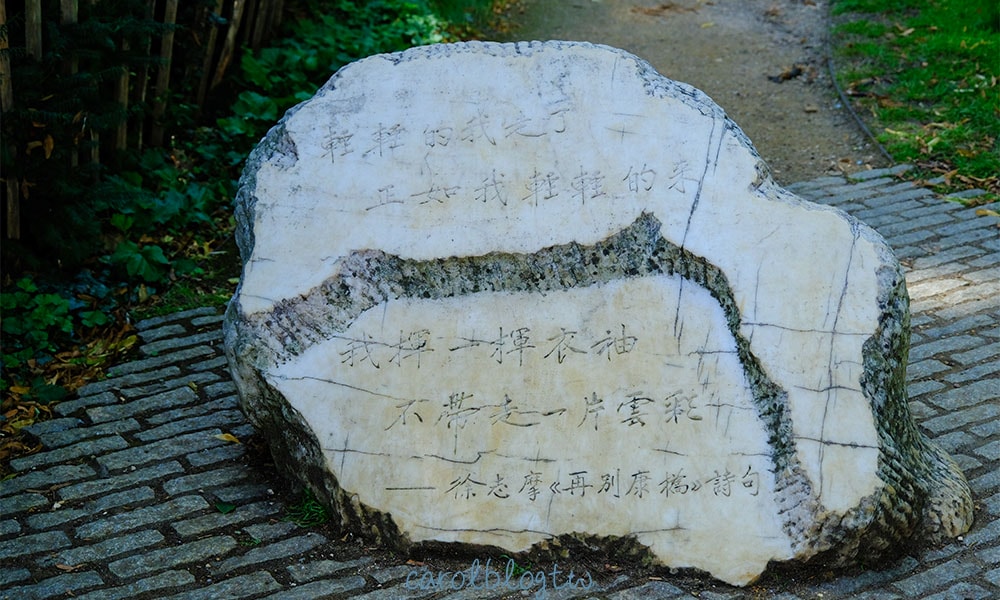 輕輕的我走了
正如我輕輕的來
我揮一揮衣袖
不帶走一片雲彩
——徐志摩《再別康橋》詩句
carolblog.tw